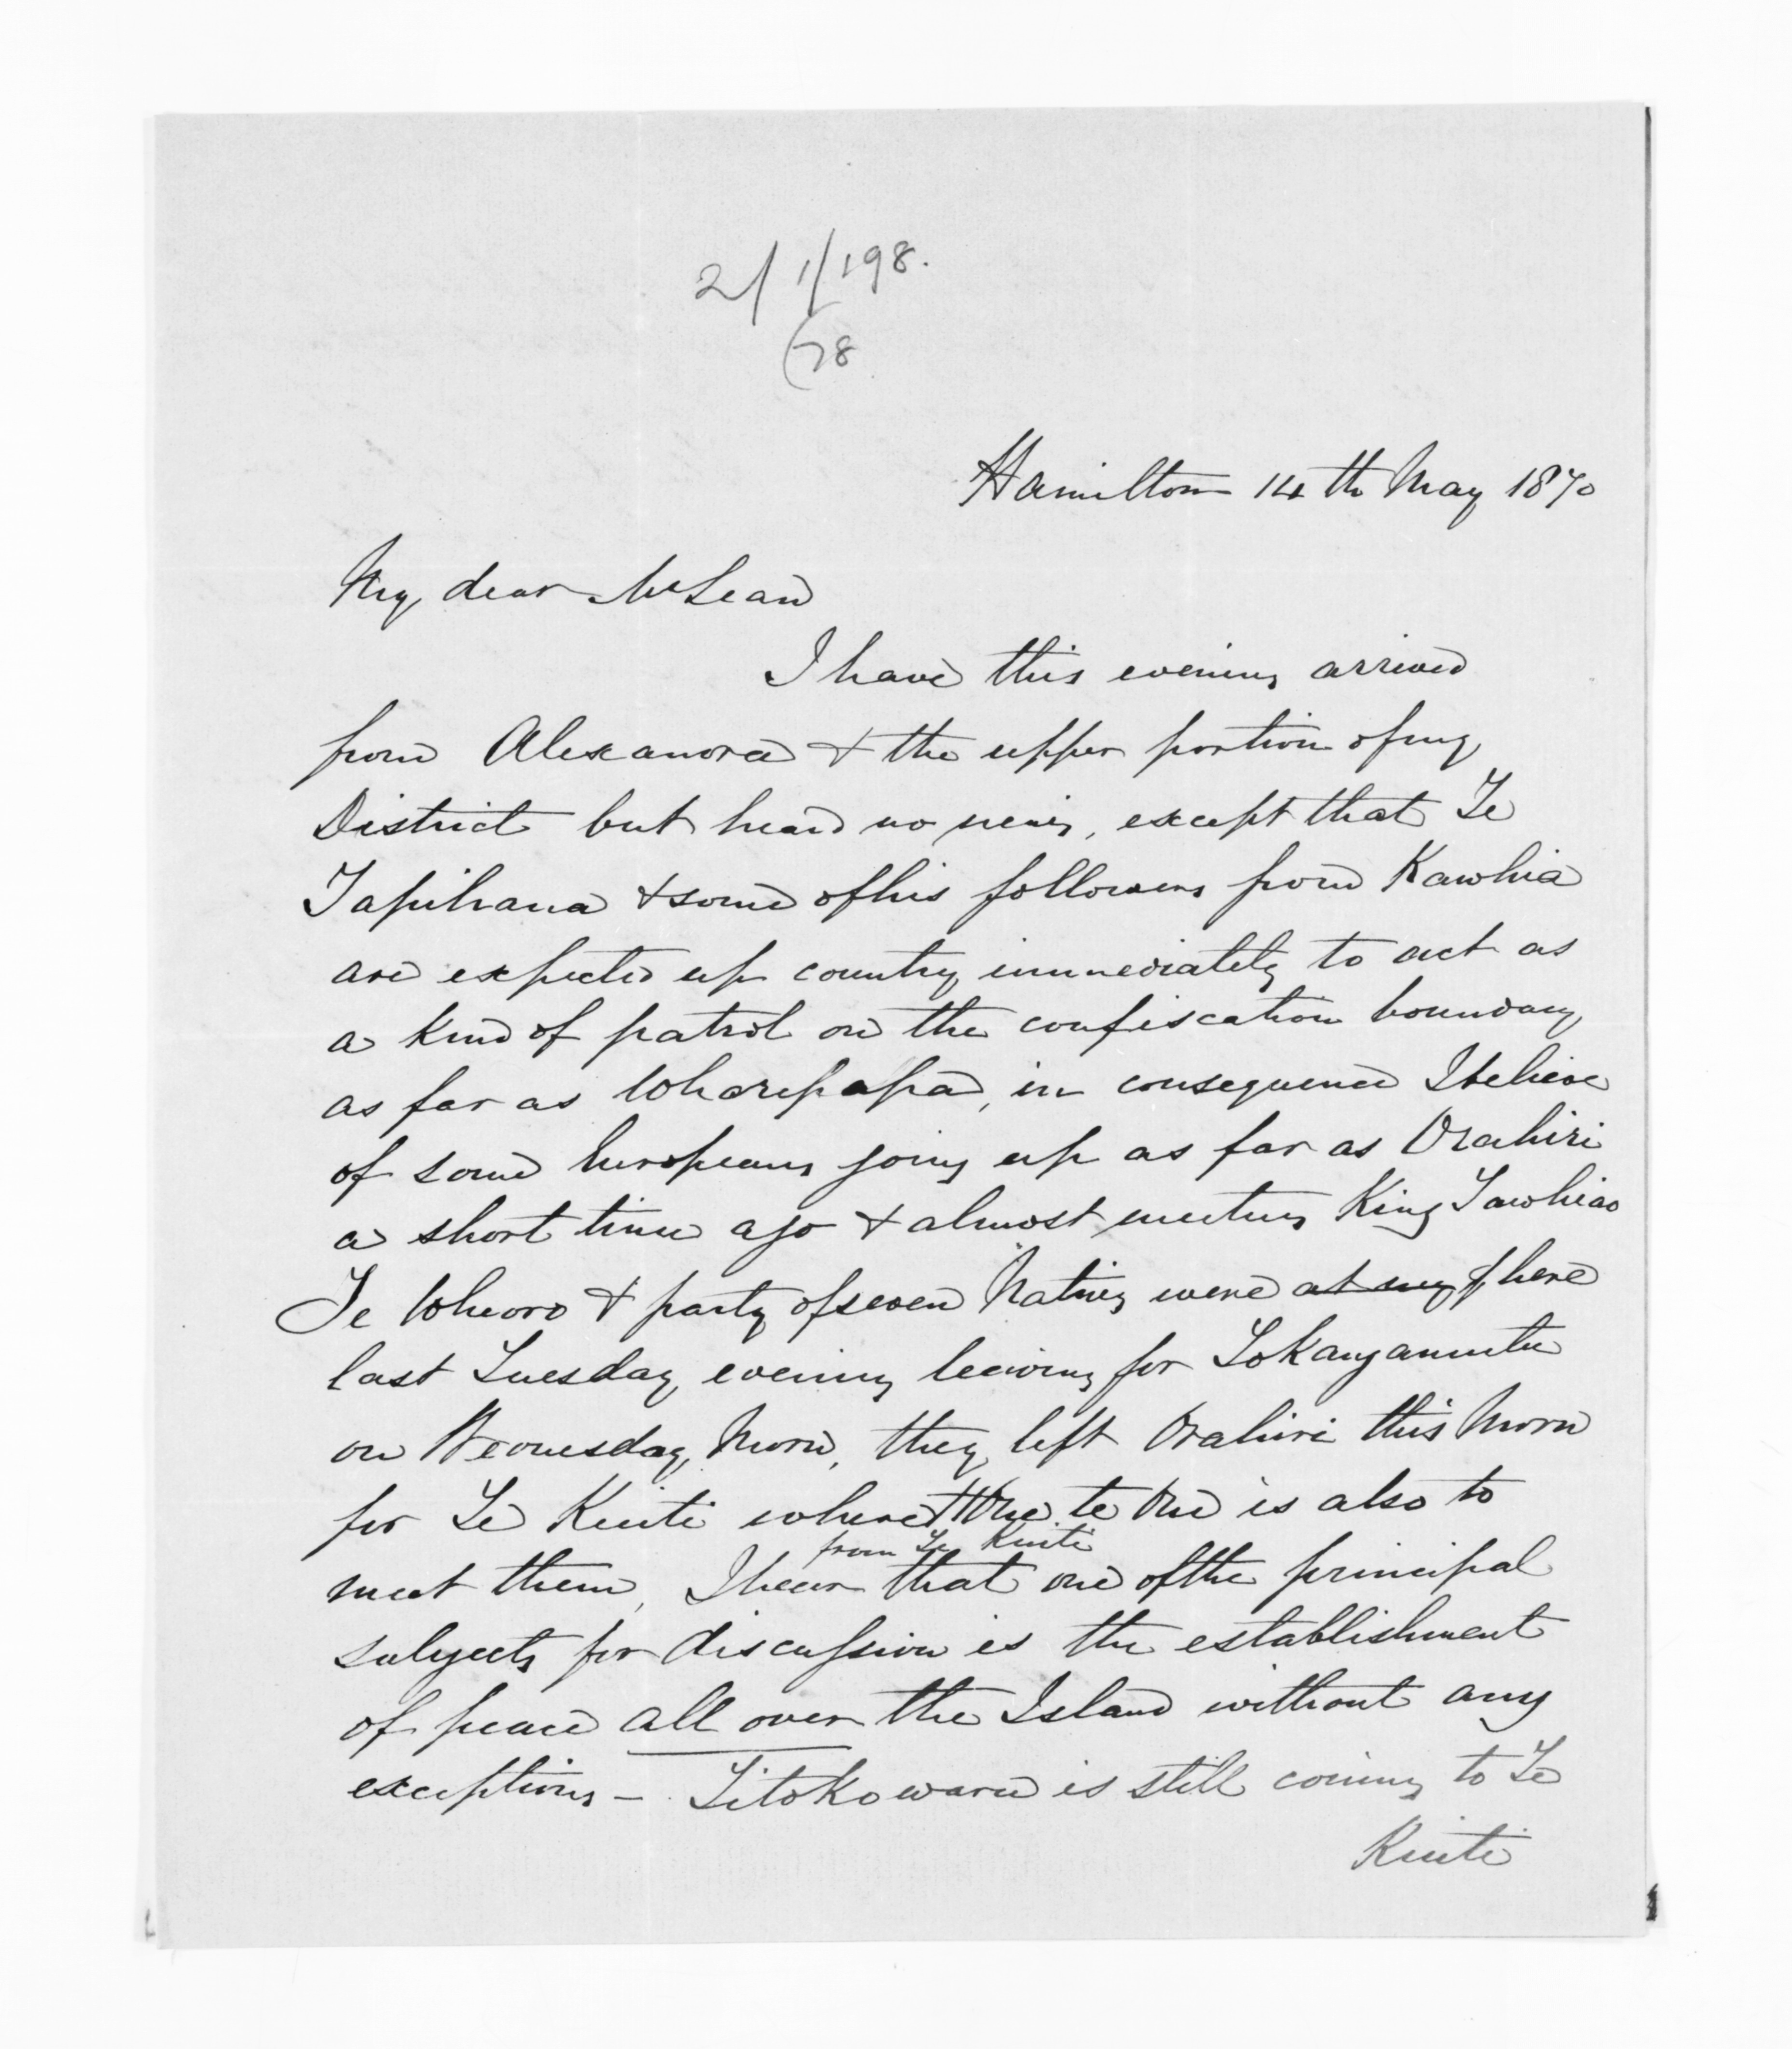 2/1/198.
(78
Hamilton 14th May 1870
My dear McLean
I have this evening arrived
from Alexandra & the upper portion of my
District but heard no news, except that Te
Tapihana & some of his followers from Kawhia
are expected up country immediately to act as
a kind of patrol on the confiscation boundary,
as far as Wharepapa, in consequence I believe
of some Europeans going up as far as Orahiri
a short time ago & almost meeting King Tawhiao
Te Wheoro & party of seven Natives were at my here
last Tuesday evening leaving for Tokangamutu
on Wednesday Morn, they left Orahiri this Morn
for Te Kuiti where Hone te One is also to
from Te Kuiti
meet them, I hear that one of the principal
subjects for discussion is the establishment
of peace all over the Island without any
exceptions - Titokowaru is still coming to Te
Kuiti